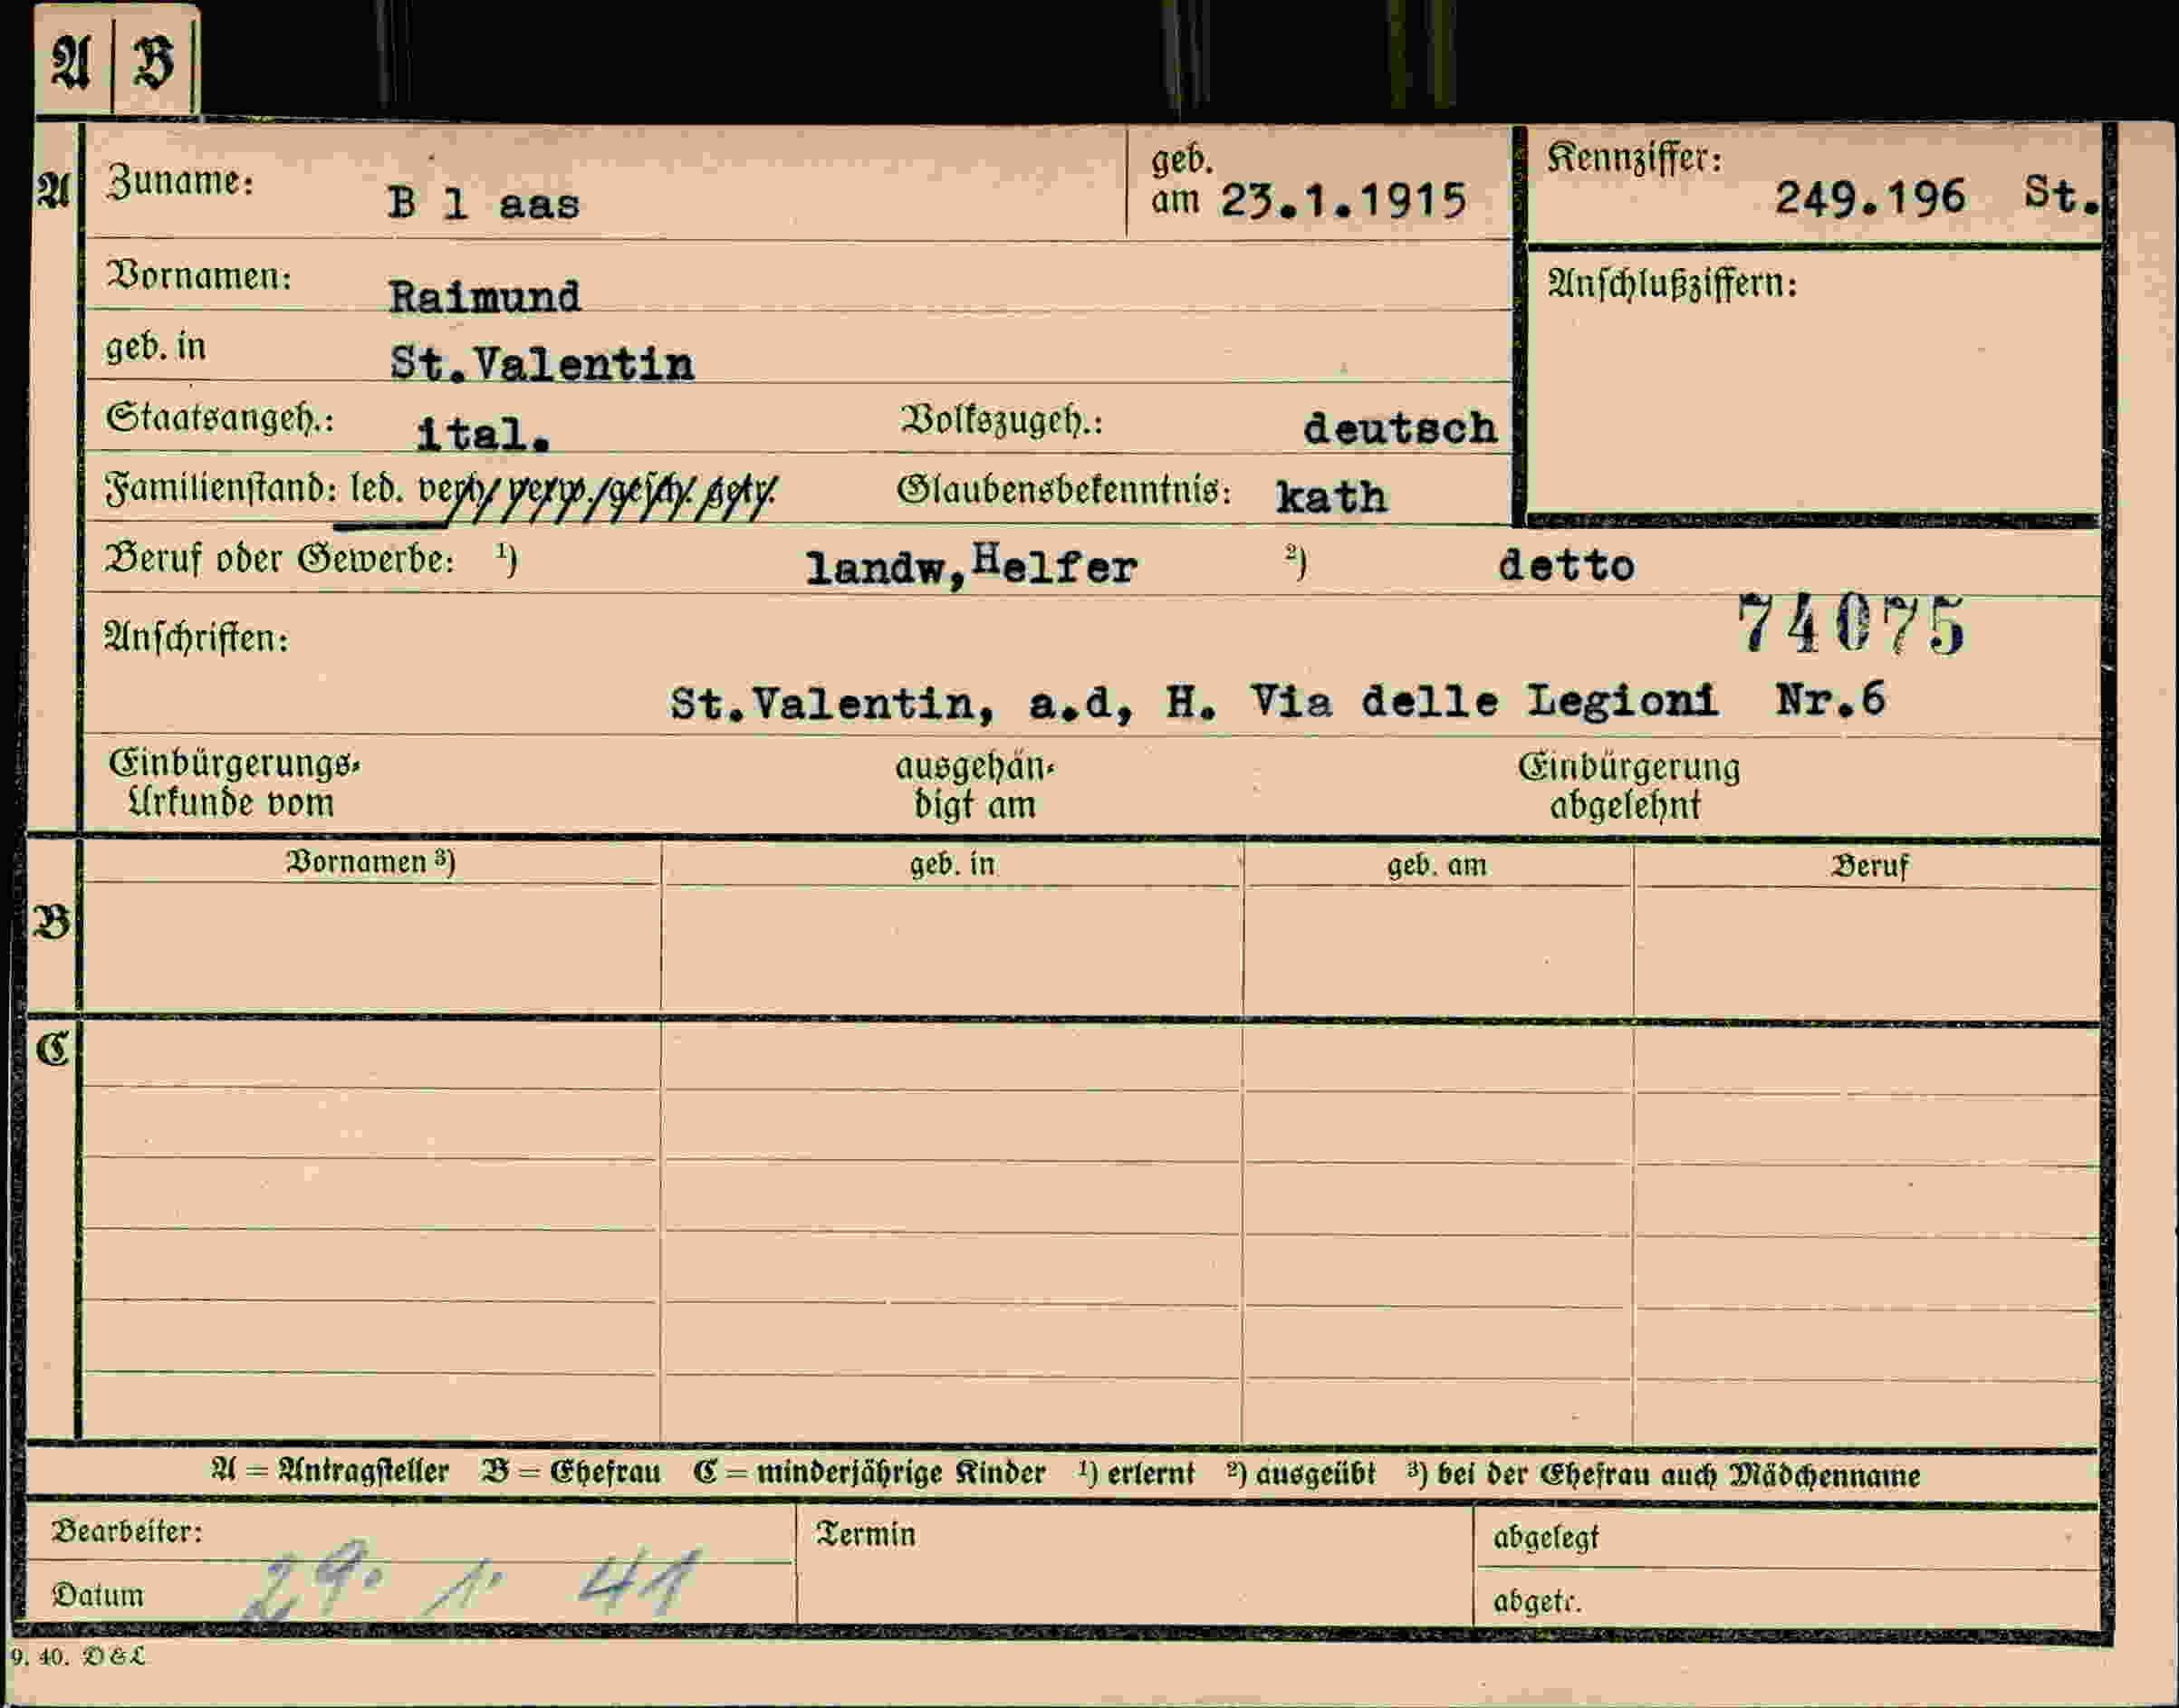 A B
A Zuname: B l aas geb. am 23.1.1915 Kennziffer: 249.196 St.
Vornamen: Raimund Anschlußziffern:
geb. in St.Valentin
Staatsangeh.: ital. Volkszugeh.: deutsch
Familienstand: led. verh. verw. gesch. getr. Glaubensbekenntnis: kath
Beruf oder Gewerbe: ¹) landw,Helfer ²) detto
74075
Anschriften:
St.Valentin, a.d, H. Via delle Legioni Nr.6
Einbürgerungs- ausgehän- Einbürgerung
Urkunde vom digt am abgelehnt
Vornamen ³) geb. in geb. am Beruf
B
C
A = Antragsteller B = Ehefrau C = minderjährige Kinder ¹) erlernt ²) ausgeübt ³) bei der Ehefrau auch Mädchenname
Bearbeiter: Termin abgelegt
Datum 29. 1. 41 abgetr.
9. 40. D & L